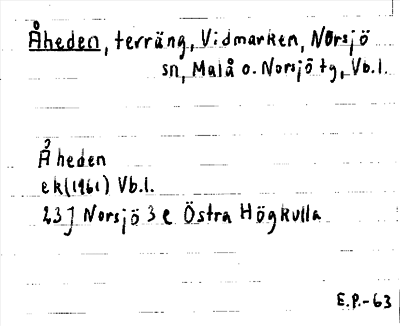 Åheden, terräng, Vidmarken, Norsjö
sn, Malå o. Norsjö tg, Vb.l.
Åheden
ek(1961) Vb.l.
23J Norsjö 3 e Östra Högkulla
E.P.-63